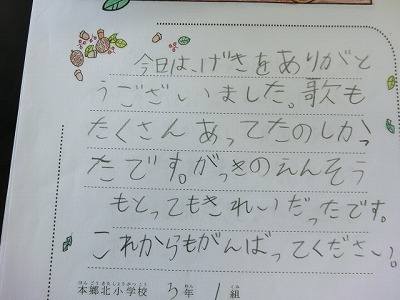 今日は、げきをありがと
うございました。歌も
たくさんあってたのしかっ
たです。がっきのえんそう
もとってもきれいだったです。
これからもがんばってください。
ほんごうきたしょうがっこう ねん くみ
本郷北小学校 5年 1組